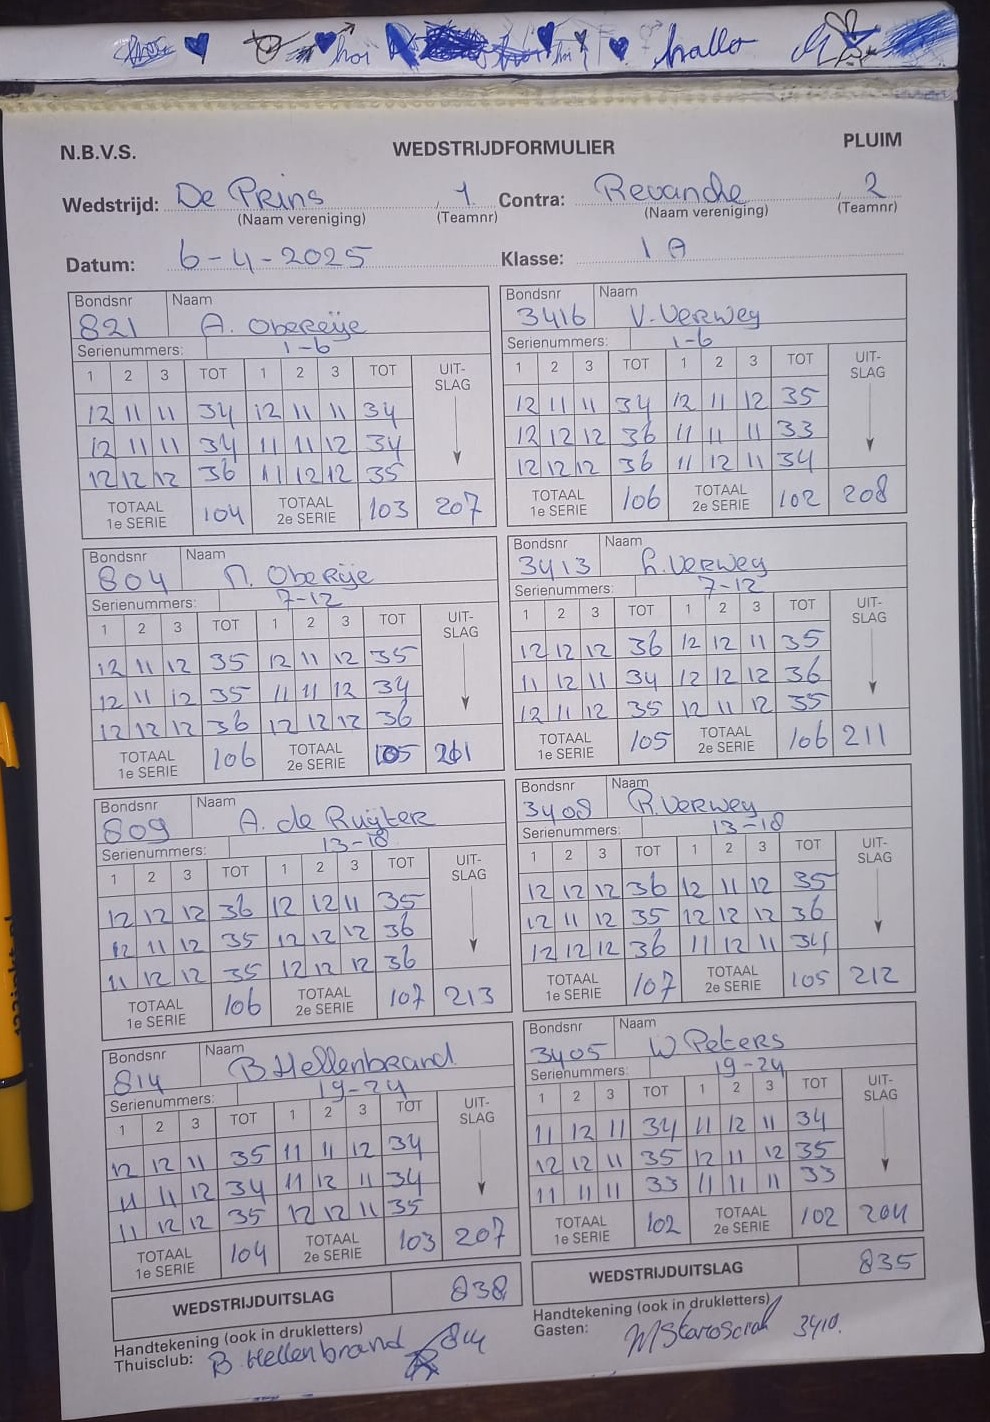 hoi hallo
N.B.V.S. WEDSTRIJDFORMULIER PLUIM
Wedstrijd: De Prins 1 Contra: Revanche 2
(Naam vereniging) (Teamnr) (Naam vereniging) (Teamnr)
Datum: 6-4-2025 Klasse: 1A
Bondsnr Naam
821 A. Obereije
Serienummers: 1-6
1 2 3 TOT 1 2 3 TOT UIT-SLAG
12 11 11 34 12 11 11 34
12 11 11 34 11 11 12 34
12 12 12 36 11 12 12 35
TOTAAL 1e SERIE 104 TOTAAL 2e SERIE 103 207
Bondsnr Naam
3416 V. Verweg
Serienummers: 1-6
1 2 3 TOT 1 2 3 TOT UIT-SLAG
12 11 11 34 12 11 12 35
12 12 12 36 11 11 11 33
12 12 12 36 11 12 11 34
TOTAAL 1e SERIE 106 TOTAAL 2e SERIE 102 208
Bondsnr Naam
804 Oberije
Serienummers: 7-12
1 2 3 TOT 1 2 3 TOT UIT-SLAG
12 11 12 35 12 11 12 35
12 11 12 35 11 11 12 34
12 12 12 36 12 12 12 36
TOTAAL 1e SERIE 106 TOTAAL 2e SERIE 105
Bondsnr Naam
3413 Verweg
Serienummers: 7-12
1 2 3 TOT 1 2 3 TOT UIT-SLAG
12 12 12 36 12 12 11 35
11 12 11 34 12 12 12 36
12 11 12 35 12 11 12 35
TOTAAL 1e SERIE 105 TOTAAL 2e SERIE 106 211
Bondsnr Naam
809 A. de Ruijter
Serienummers: 13-18
1 2 3 TOT 1 2 3 TOT UIT-SLAG
12 12 12 36 12 12 11 35
12 11 12 35 12 12 12 36
11 12 12 35 12 12 12 36
TOTAAL 1e SERIE 106 TOTAAL 2e SERIE 107 213
Bondsnr Naam
3408 R. Verweg
Serienummers: 13-18
1 2 3 TOT 1 2 3 TOT UIT-SLAG
12 12 12 36 12 11 12 35
12 11 12 35 12 12 12 36
12 12 12 36 11 12 11 34
TOTAAL 1e SERIE 107 TOTAAL 2e SERIE 105 212
Bondsnr Naam
814 B Hellenbrand
Serienummers: 19-24
1 2 3 TOT 1 2 3 TOT UIT-SLAG
12 12 11 35 11 11 12 34
11 11 12 34 11 12 11 34
11 12 12 35 12 12 11 35
TOTAAL 1e SERIE 104 TOTAAL 2e SERIE 103 207
Bondsnr Naam
3405 W Peters
Serienummers: 19-24
1 2 3 TOT 1 2 3 TOT UIT-SLAG
11 12 11 34 11 12 11 34
12 12 11 35 12 11 12 35
11 11 11 33 11 11 11 33
TOTAAL 1e SERIE 102 TOTAAL 2e SERIE 102 204
WEDSTRIJDUITSLAG 838
WEDSTRIJDUITSLAG 835
Handtekening (ook in drukletters)
Thuisclub: B Hellenbrand 814
Handtekening (ook in drukletters)
Gasten: 3410.